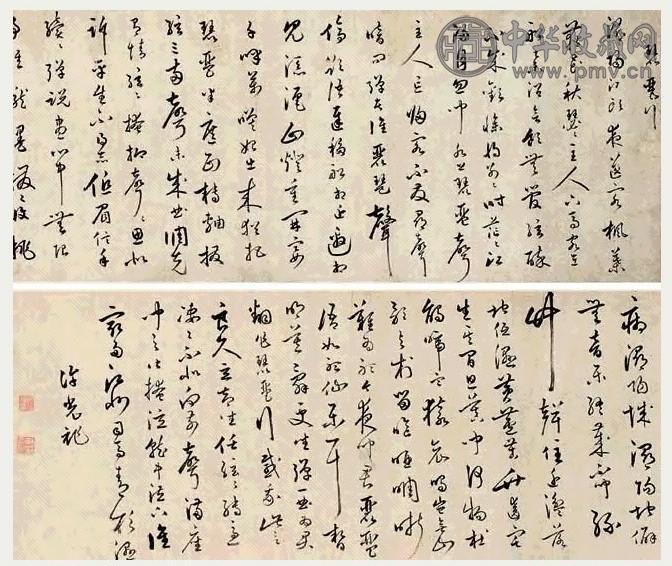 中华收藏网
www.pmv.cn
琵琶行
潯陽江頭夜送客楓葉
荻花秋瑟瑟主人下馬客在
船舉酒欲飲無管絃醉
不成歡慘將別別時茫茫江
浸月忽聞水上琵琶聲
主人忘歸客不發尋聲
暗問彈者誰琵琶聲
停欲語遲移船相近邀相
見添酒回燈重開宴
千呼萬喚始出來猶抱
琵琶半遮面轉軸撥
絃三兩聲未成曲調先
有情絃絃掩抑聲聲思似
訴平生不得意低眉信手
續續彈說盡心中無限
病潯陽城潯陽地僻
無音樂終歲不聞絲
竹聲住近湓
地低濕黃蘆苦竹遶宅
生其間旦暮聞何物杜
鵑啼血猿哀鳴豈無山
歌與村笛嘔啞嘲哳
難為聽今夜聞君琵琶
語如聽仙樂耳暫
明莫辭更坐彈一曲為君
翻作琵琶行感我此言
良久立却坐促絃絃轉急
淒淒不似向前聲滿座
聞之皆掩泣就中泣下誰
最多江州司馬青衫濕
許光祚